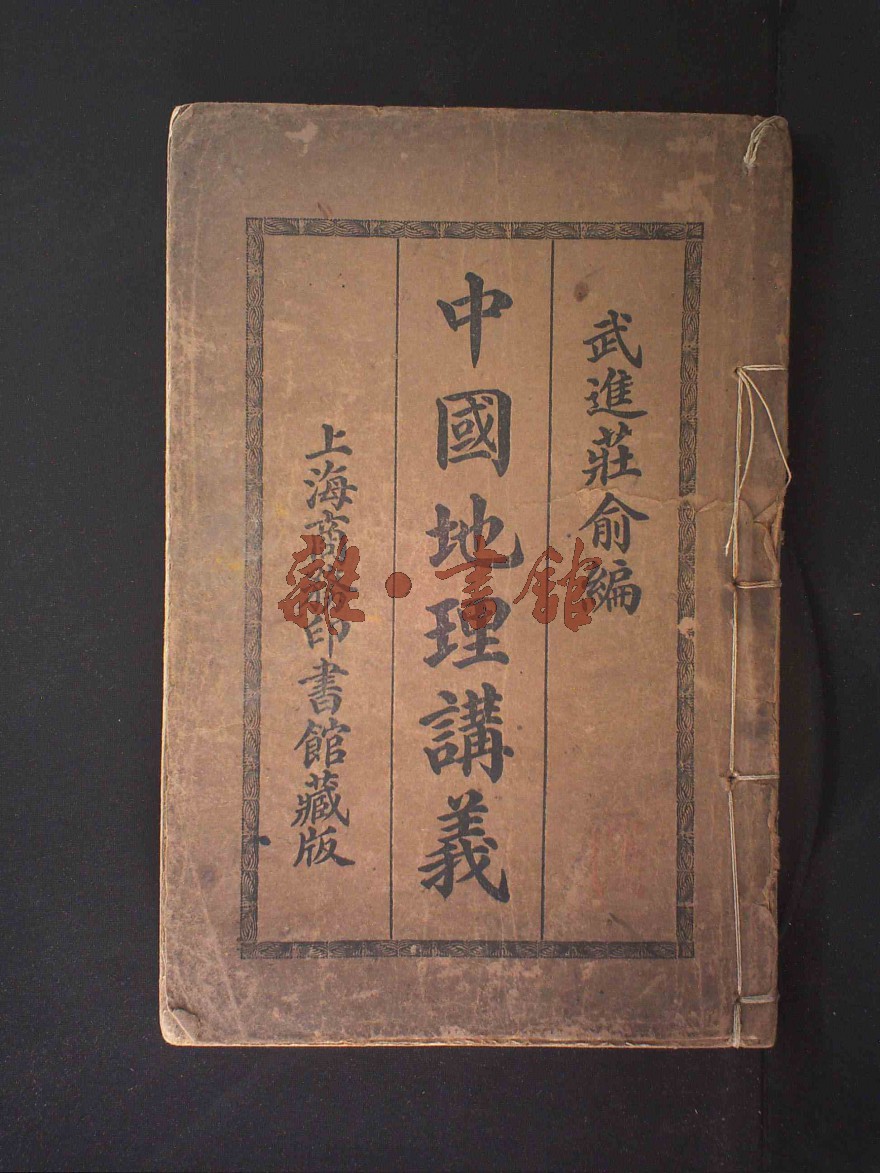 武進莊俞編
中國地理講義
上海商務印書館藏版
雜·書館